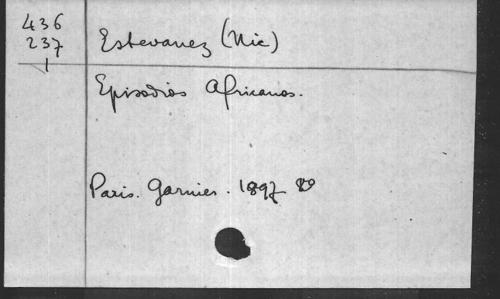 436
237
1
Estevanez (Nic)
Episodios Africanos.
Paris. Garnier. 1897 8º